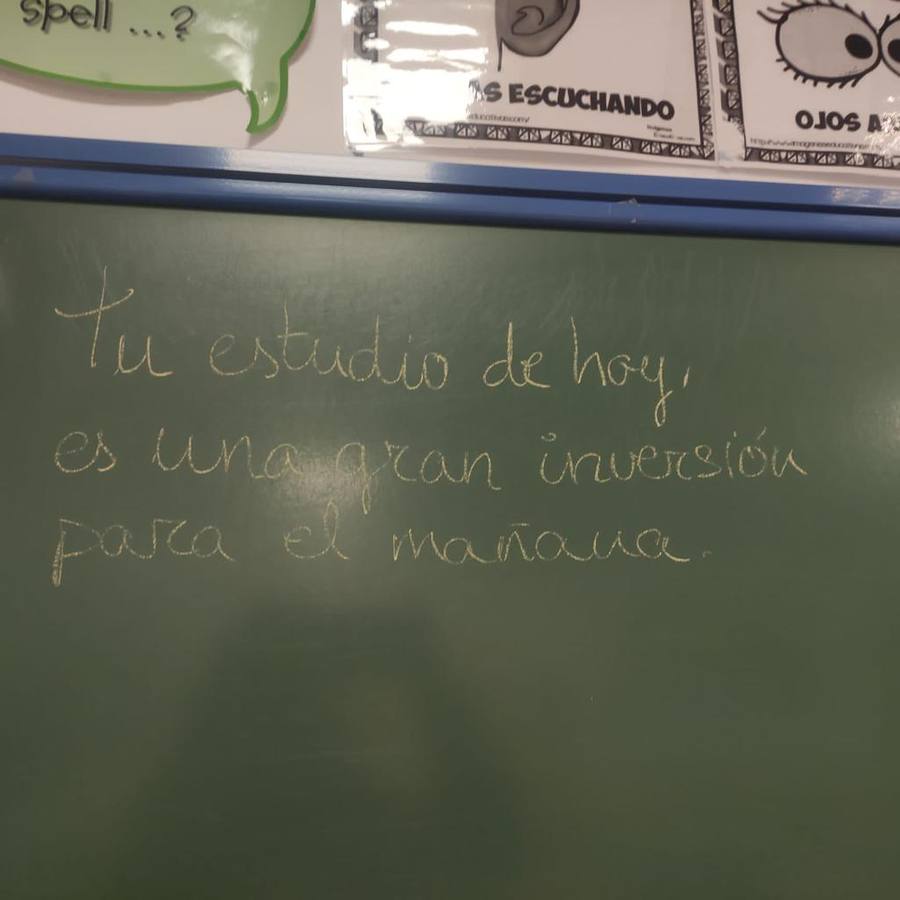 spell ...?
ESCUCHANDO
OJOS
Tu estudio de hoy,
es una gran inversión
para el mañana.